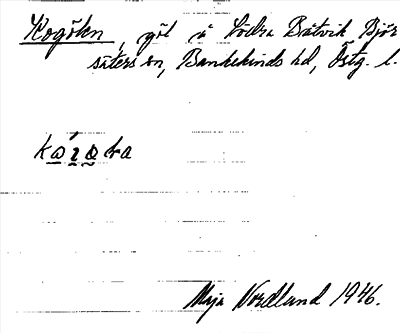 Kogökn, göl å Södra Båtvik Björ
säters sn, Bankekinds hd, Östg. l.
Maja Nordlund 1946.